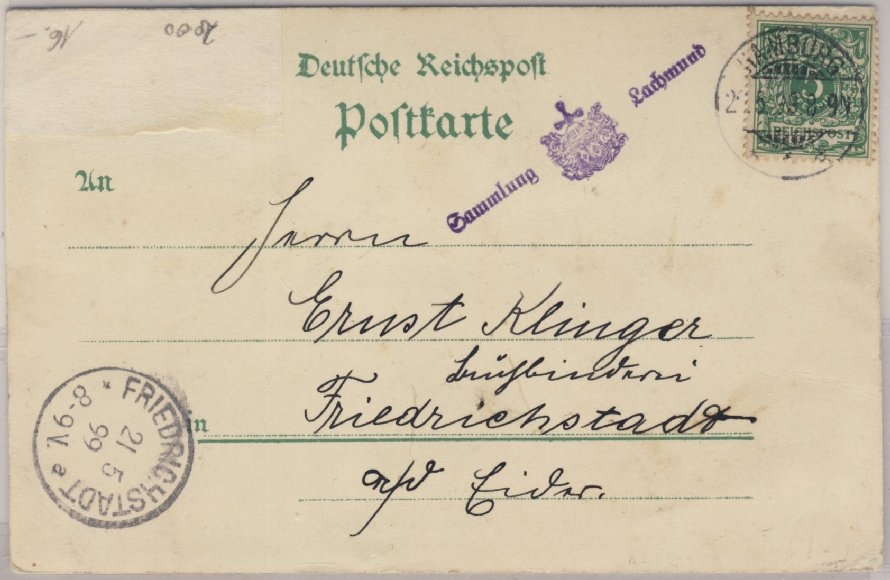 16.-
2000
Deutsche Reichspost
Postkarte
Sammlung Lachmund
HAMBURG
5
REICHSPOST
An
Herrn
Ernst Klinger
Buchbinderei
in Friedrichstadt
a/d Eider.
FRIEDRICHSTADT
*
8-9V. a
21 5
99